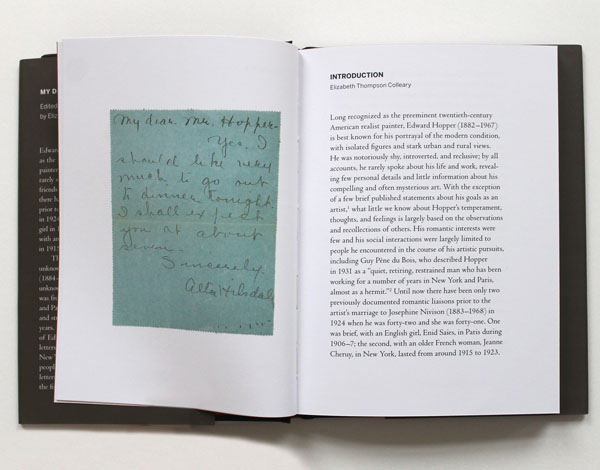 MY D
Edited
by Eliz
Edwar
as the
painter
rarely s
friends
there h
prior t
in 192
girl in
with an
in 191
Th
unkno
(1884-
unkno
was fi
and P
and st
years.
of Ed
letter
New
peopl
letter
the fi
My dear Mr. Hopper-
Yes, I
should like very
much to go out
to dinner tonight
I shall expect
you at about
seven.
Sincerely.
Alta Hilsdale
INTRODUCTION
Elizabeth Thompson Colleary
Long recognized as the preeminent twentieth-century
American realist painter, Edward Hopper (1882–1967)
is best known for his portrayal of the modern condition,
with isolated figures and stark urban and rural views.
He was notoriously shy, introverted, and reclusive; by all
accounts, he rarely spoke about his life and work, reveal-
ing few personal details and little information about his
compelling and often mysterious art. With the exception
of a few brief published statements about his goals as an
artist,¹ what little we know about Hopper's temperament,
thoughts, and feelings is largely based on the observations
and recollections of others. His romantic interests were
few and his social interactions were largely limited to
people he encountered in the course of his artistic pursuits,
including Guy Pène du Bois, who described Hopper
in 1931 as a "quiet, retiring, restrained man who has been
working for a number of years in New York and Paris,
almost as a hermit."² Until now there have been only two
previously documented romantic liaisons prior to the
artist's marriage to Josephine Nivison (1883–1968) in
1924 when he was forty-two and she was forty-one. One
was brief, with an English girl, Enid Saies, in Paris during
1906–7; the second, with an older French woman, Jeanne
Cheruy, in New York, lasted from around 1915 to 1923.